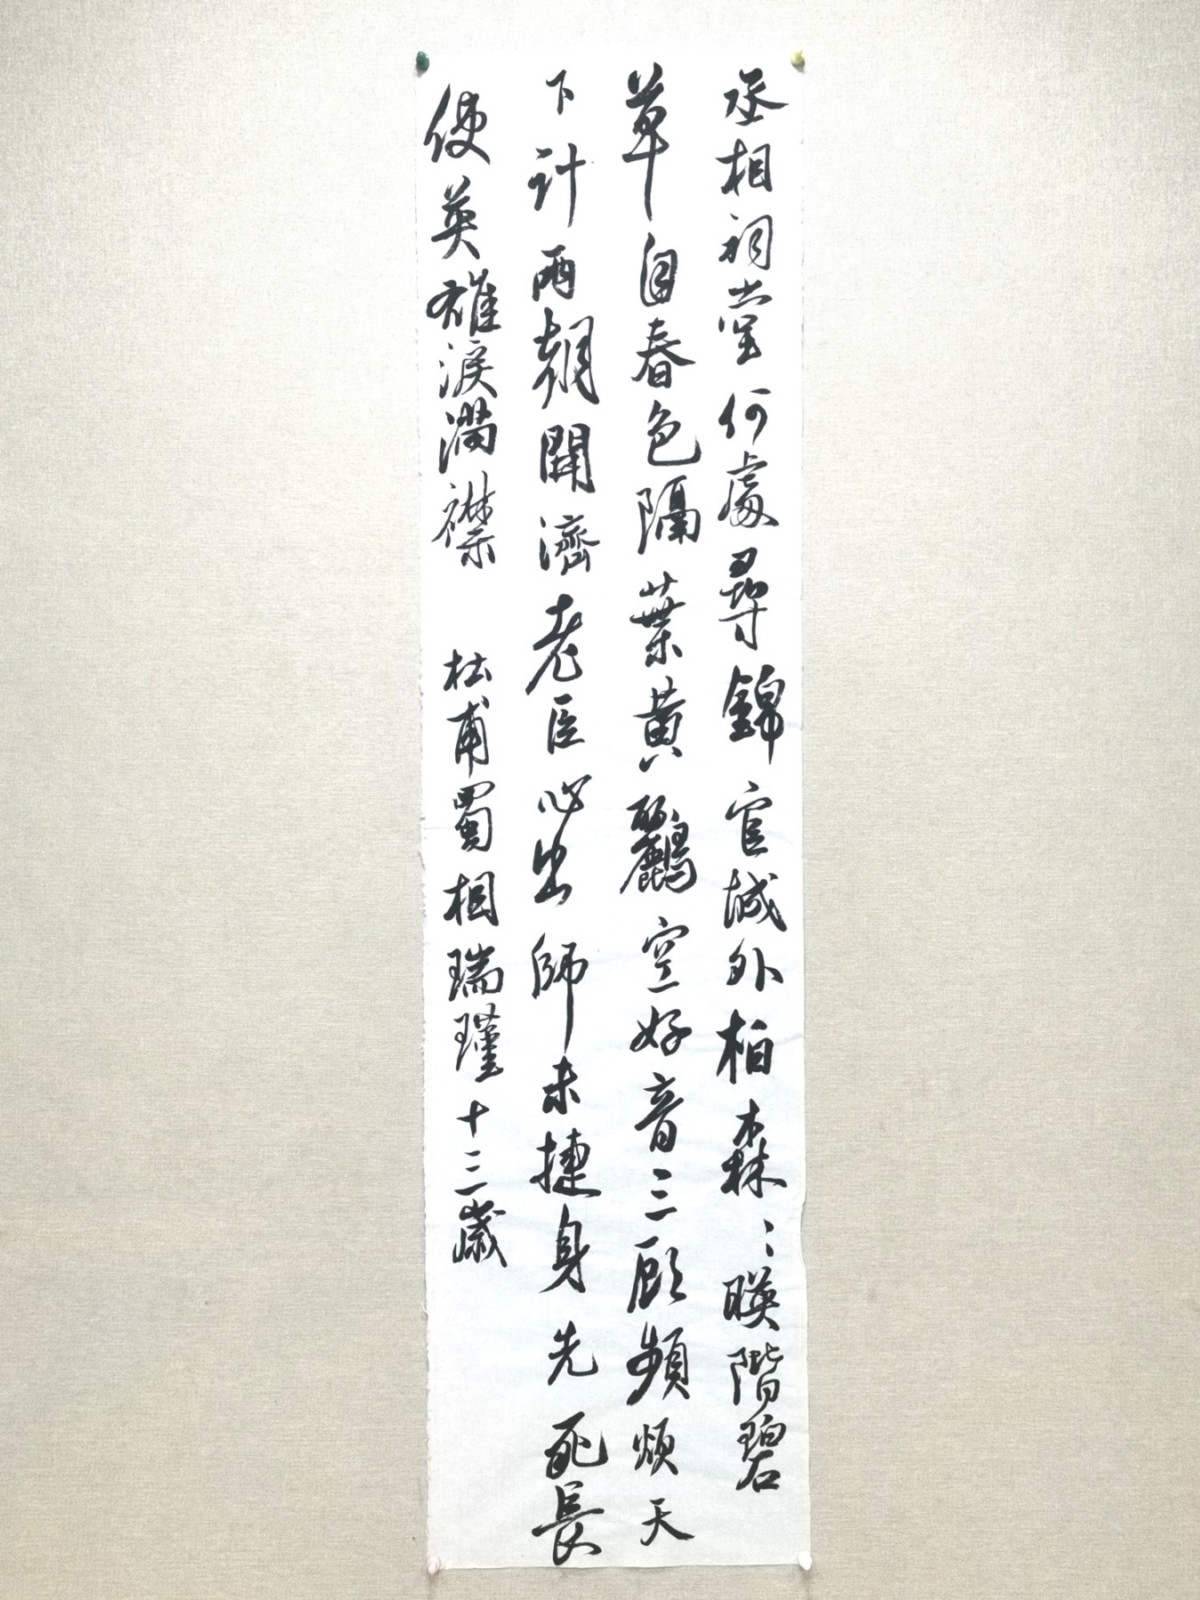 丞相祠堂何處尋錦官城外柏森〻暎階碧
草自春色隔葉黄鸝空好音三顧頻煩天
下計兩朝開濟老臣心出師未捷身先死長
使英雄淚滿襟 杜甫蜀相瑞瑾十三歲